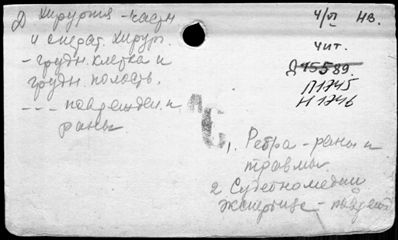 Д Хирургия - частн
и операт. хирур.
- грудн. клетка и
грудн. полость.
- - - поврежден. и
раны
4/VI нв.
чит.
Д45589.
П1745
Н1746
1. Ребра - раны и
травмы
2 Судебномедиц
экспертиза - поврежд